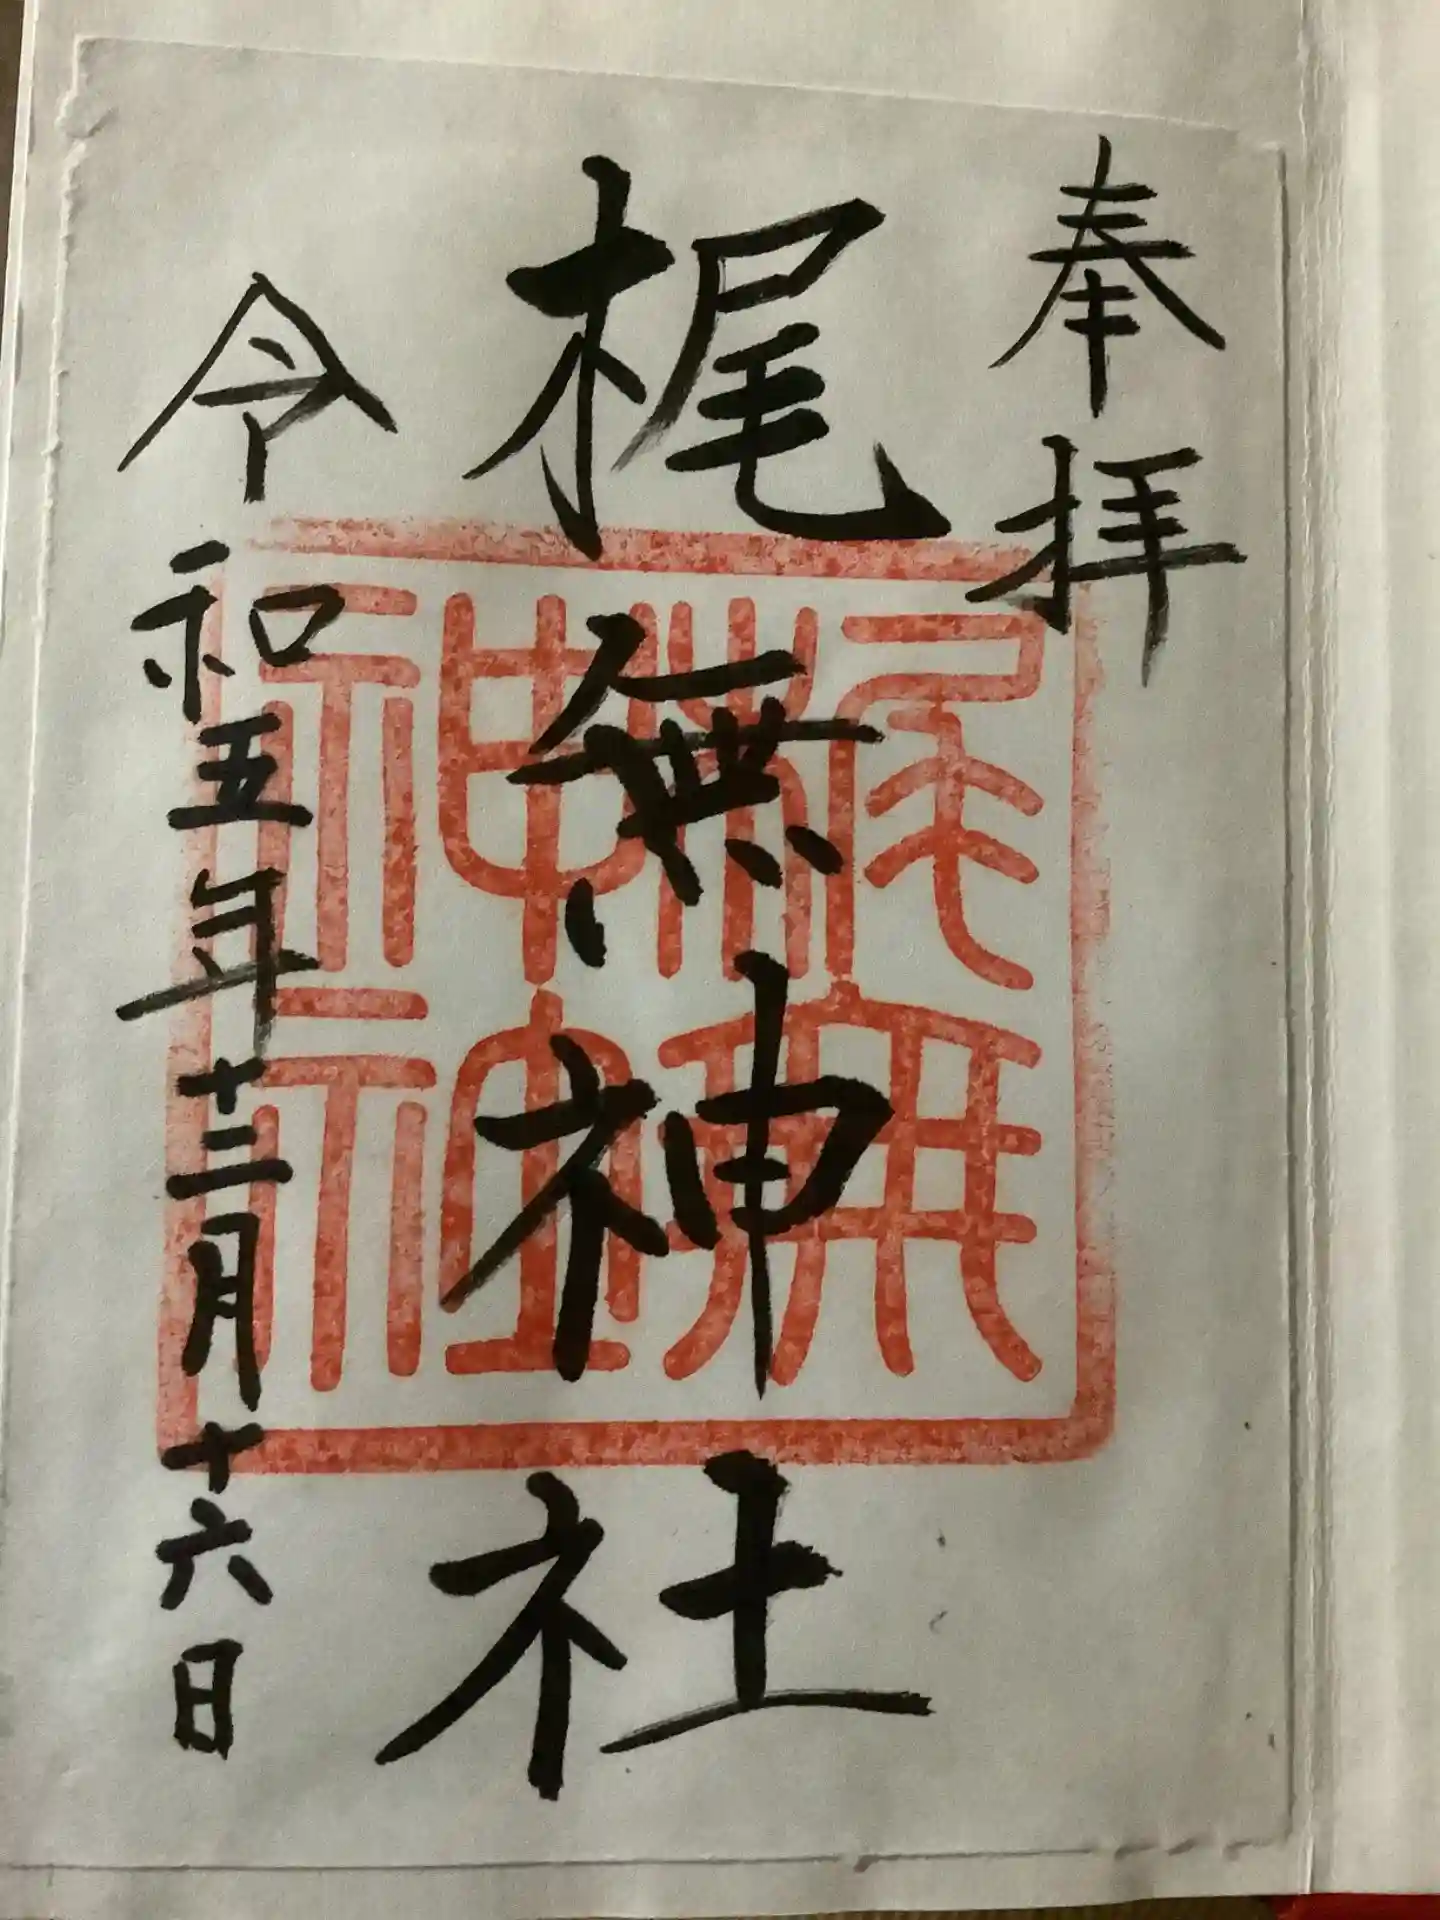 奉拝
梶無神社
梶無神社
令和五年十二月十六日